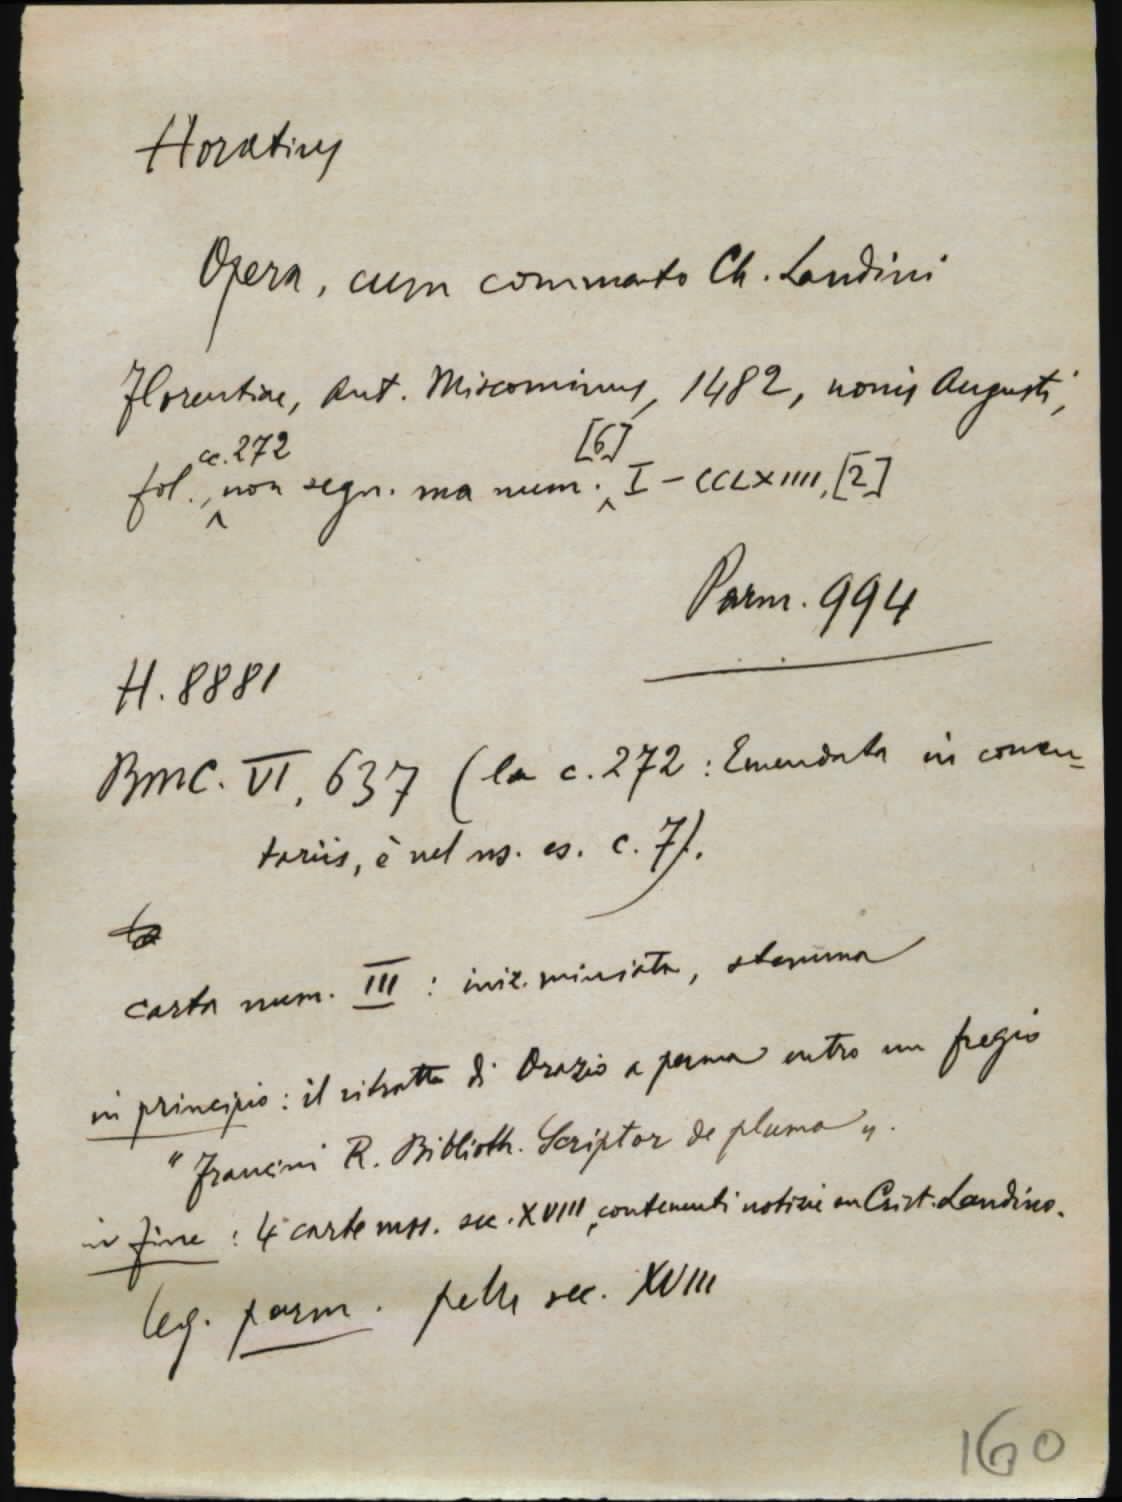 Horatius
Opera, cum commento Ch. Landini
Florentiae, Ant. Miscominus, 1482, nonis Augusti,
fol., cc. 272 non segn. ma num. [6] I - CCLXIIII, [2]
Parm. 994
H. 8881
BMC. VI, 637 (la c. 272 : Emendata in comen-
tariis, è nel ns. es. c. 7).
carta num. III : iniz. miniata, stemma
in principio : il ritratto di Orazio a penna entro un fregio
" Francini R. Biblioth. Scriptor de pluma ".
in fine : 4 carte mss. sec. XVIII, contenenti notizie su Crist. Landino.
leg. parm. pelle sec. XVIII
160